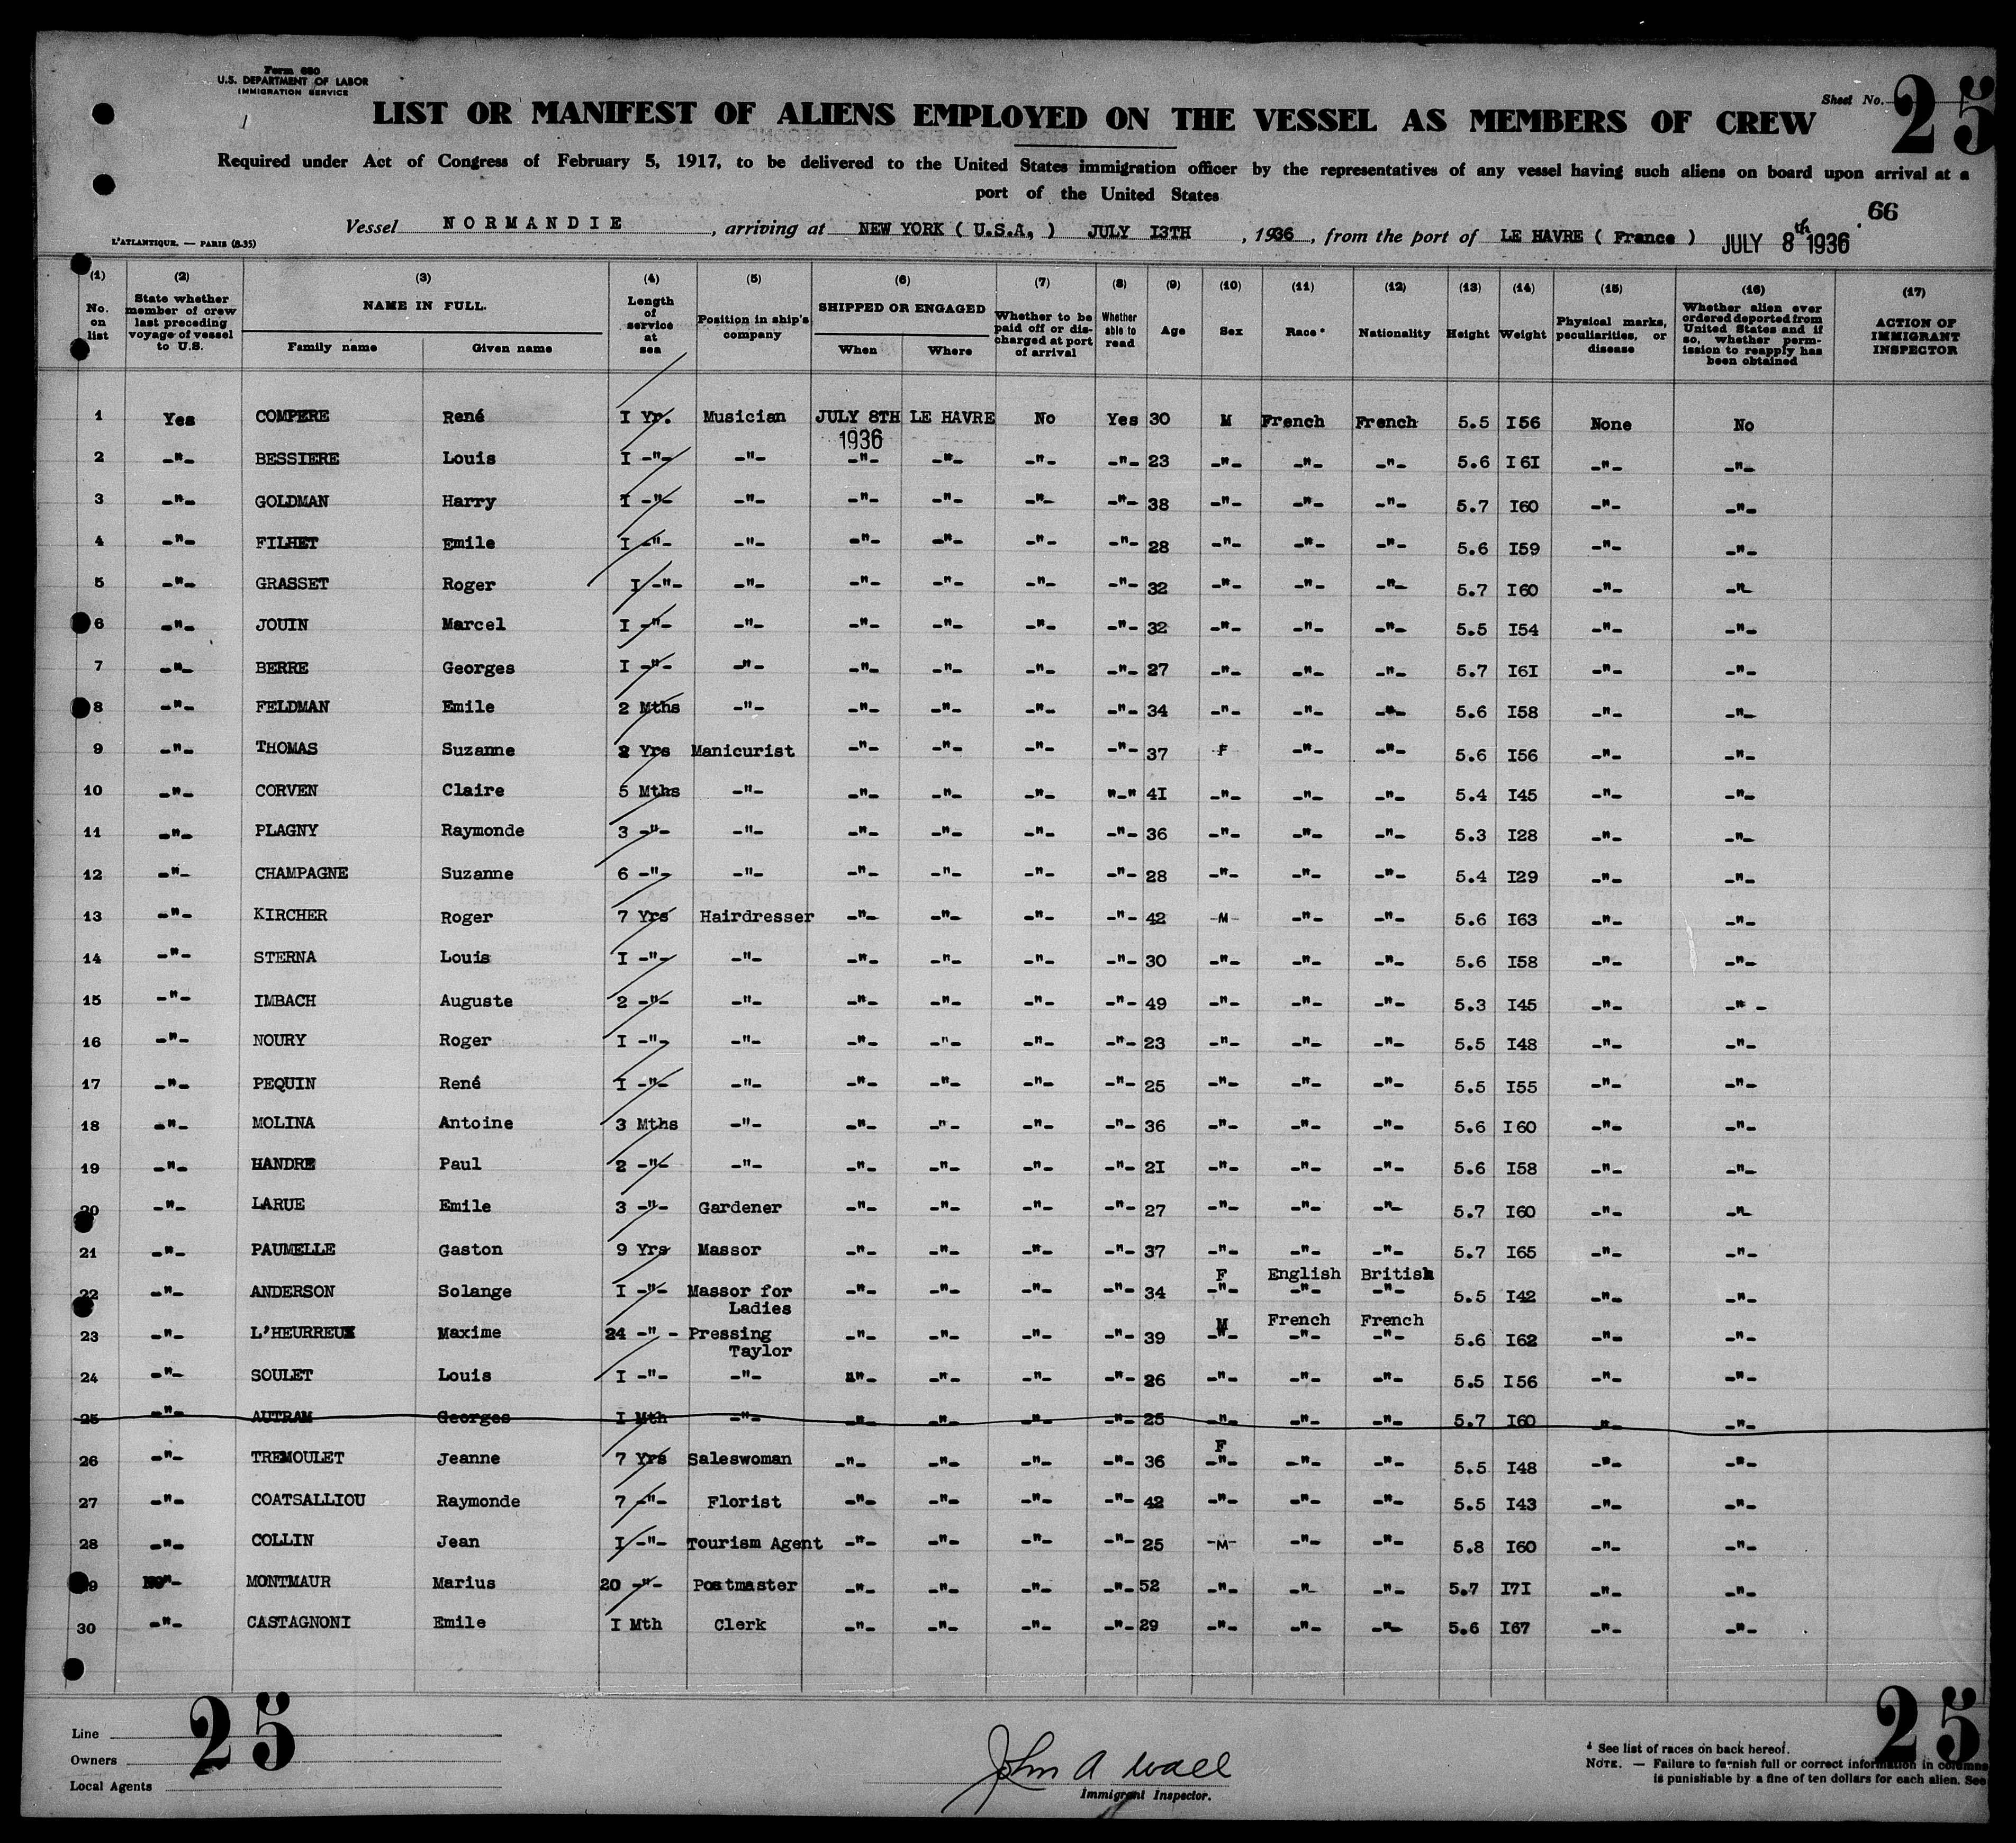 Form 680
U.S. DEPARTMENT OF LABOR
IMMIGRATION SERVICE
LIST OR MANIFEST OF ALIENS EMPLOYED ON THE VESSEL AS MEMBERS OF CREW
Sheet No. 25
Required under Act of Congress of February 5, 1917, to be delivered to the United States immigration officer by the representatives of any vessel having such aliens on board upon arrival at a
port of the United States
66
L'ATLANTIQUE. — PARIS (8-35)
Vessel NORMANDIE, arriving at NEW YORK ( U.S.A, ) JULY I3TH, 1936, from the port of LE HAVRE ( France ) JULY 8th 1936
(1) No. on list (2) State whether member of crew last preceding voyage of vessel to U.S. (3) NAME IN FULL. Family name Given name (4) Length of service at sea (5) Position in ship's company (6) SHIPPED OR ENGAGED When Where (7) Whether to be paid off or discharged at port of arrival (8) Whether able to read (9) Age (10) Sex (11) Race* (12) Nationality (13) Height (14) Weight (15) Physical marks, peculiarities, or disease (16) Whether alien ever ordered deported from United States and if so, whether permission to reapply has been obtained (17) ACTION OF IMMIGRANT INSPECTOR
1 Yes COMPERE René I Yr. Musician JULY 8TH 1936 LE HAVRE No Yes 30 M French French 5.5 I56 None No
2 -"- BESSIERE Louis I -"- -"- -"- -"- -"- -"- 23 -"- -"- -"- 5.6 I6I -"- -"-
3 -"- GOLDMAN Harry I -"- -"- -"- -"- -"- -"- 38 -"- -"- -"- 5.7 I60 -"- -"-
4 -"- FILHET Emile I -"- -"- -"- -"- -"- -"- 28 -"- -"- -"- 5.6 I59 -"- -"-
5 -"- GRASSET Roger I -"- -"- -"- -"- -"- -"- 32 -"- -"- -"- 5.7 I60 -"- -"-
6 -"- JOUIN Marcel I -"- -"- -"- -"- -"- -"- 32 -"- -"- -"- 5.5 I54 -"- -"-
7 -"- BERRE Georges I -"- -"- -"- -"- -"- -"- 27 -"- -"- -"- 5.7 I6I -"- -"-
8 -"- FELDMAN Emile 2 Mths -"- -"- -"- -"- -"- 34 -"- -"- -"- 5.6 I58 -"- -"-
9 -"- THOMAS Suzanne 2 Yrs Manicurist -"- -"- -"- -"- 37 F -"- -"- 5.6 I56 -"- -"-
10 -"- CORVEN Claire 5 Mths -"- -"- -"- -"- "-" 4I -"- -"- -"- 5.4 I45 -"- -"-
11 -"- PLAGNY Raymonde 3 -"- -"- -"- -"- -"- -"- 36 -"- -"- -"- 5.3 I28 -"- -"-
12 -"- CHAMPAGNE Suzanne 6 -"- -"- -"- -"- -"- -"- 28 -"- -"- -"- 5.4 I29 -"- -"-
13 -"- KIRCHER Roger 7 Yrs Hairdresser -"- -"- -"- -"- 42 -M- -"- -"- 5.6 I63 -"- -"-
14 -"- STERNA Louis I -"- -"- -"- -"- -"- -"- 30 -"- -"- -"- 5.6 I58 -"- -"-
15 -"- IMBACH Auguste 2 -"- -"- -"- -"- -"- -"- 49 -"- -"- -"- 5.3 I45 -"- -"-
16 -"- NOURY Roger I -"- -"- -"- -"- -"- -"- 23 -"- -"- -"- 5.5 I48 -"- -"-
17 -"- PEQUIN René I -"- -"- -"- -"- -"- -"- 25 -"- -"- -"- 5.5 I55 -"- -"-
18 -"- MOLINA Antoine 3 Mths -"- -"- -"- -"- -"- 36 -"- -"- -"- 5.6 I60 -"- -"-
19 -"- HANDRE Paul 2 -"- -"- -"- -"- -"- -"- 2I -"- -"- -"- 5.6 I58 -"- -"-
20 -"- LARUE Emile 3 -"- Gardener -"- -"- -"- -"- 27 -"- -"- -"- 5.7 I60 -"- -"-
21 -"- PAUMELLE Gaston 9 Yrs Massor -"- -"- -"- -"- 37 -"- -"- -"- 5.7 I65 -"- -"-
22 -"- ANDERSON Solange I -"- Massor for Ladies -"- -"- -"- -"- 34 F -"- English -"- British -"- 5.5 I42 -"- -"-
23 -"- L'HEURREUX Maxime 24 -"- Pressing Taylor -"- -"- -"- -"- 39 M -"- French -"- French -"- 5.6 I62 -"- -"-
24 -"- SOULET Louis I -"- -"- -"- -"- -"- -"- 26 -"- -"- -"- 5.5 I56 -"- -"-
25 -"- AUTRAM Georges I Mth -"- -"- -"- -"- -"- 25 -"- -"- -"- 5.7 I60 -"- -"-
26 -"- TREMOULET Jeanne 7 Yrs Saleswoman -"- -"- -"- -"- 36 F -"- -"- -"- 5.5 I48 -"- -"-
27 -"- COATSALLIOU Raymonde 7 -"- Florist -"- -"- -"- -"- 42 -"- -"- -"- 5.5 I43 -"- -"-
28 -"- COLLIN Jean I -"- Tourism Agent -"- -"- -"- -"- 25 -M- -"- -"- 5.8 I60 -"- -"-
29 MONTMAUR Marius 20 -"- Postmaster -"- -"- -"- -"- 52 -"- -"- -"- 5.7 I7I -"- -"-
30 -"- CASTAGNONI Emile I Mth Clerk -"- -"- -"- -"- 29 -"- -"- -"- 5.6 I67 -"- -"-
25
25
Line
Owners
Local Agents
John A Wall
Immigrant Inspector.
* See list of races on back hereof.
NOTE. — Failure to furnish full or correct information in columns
is punishable by a fine of ten dollars for each alien. See